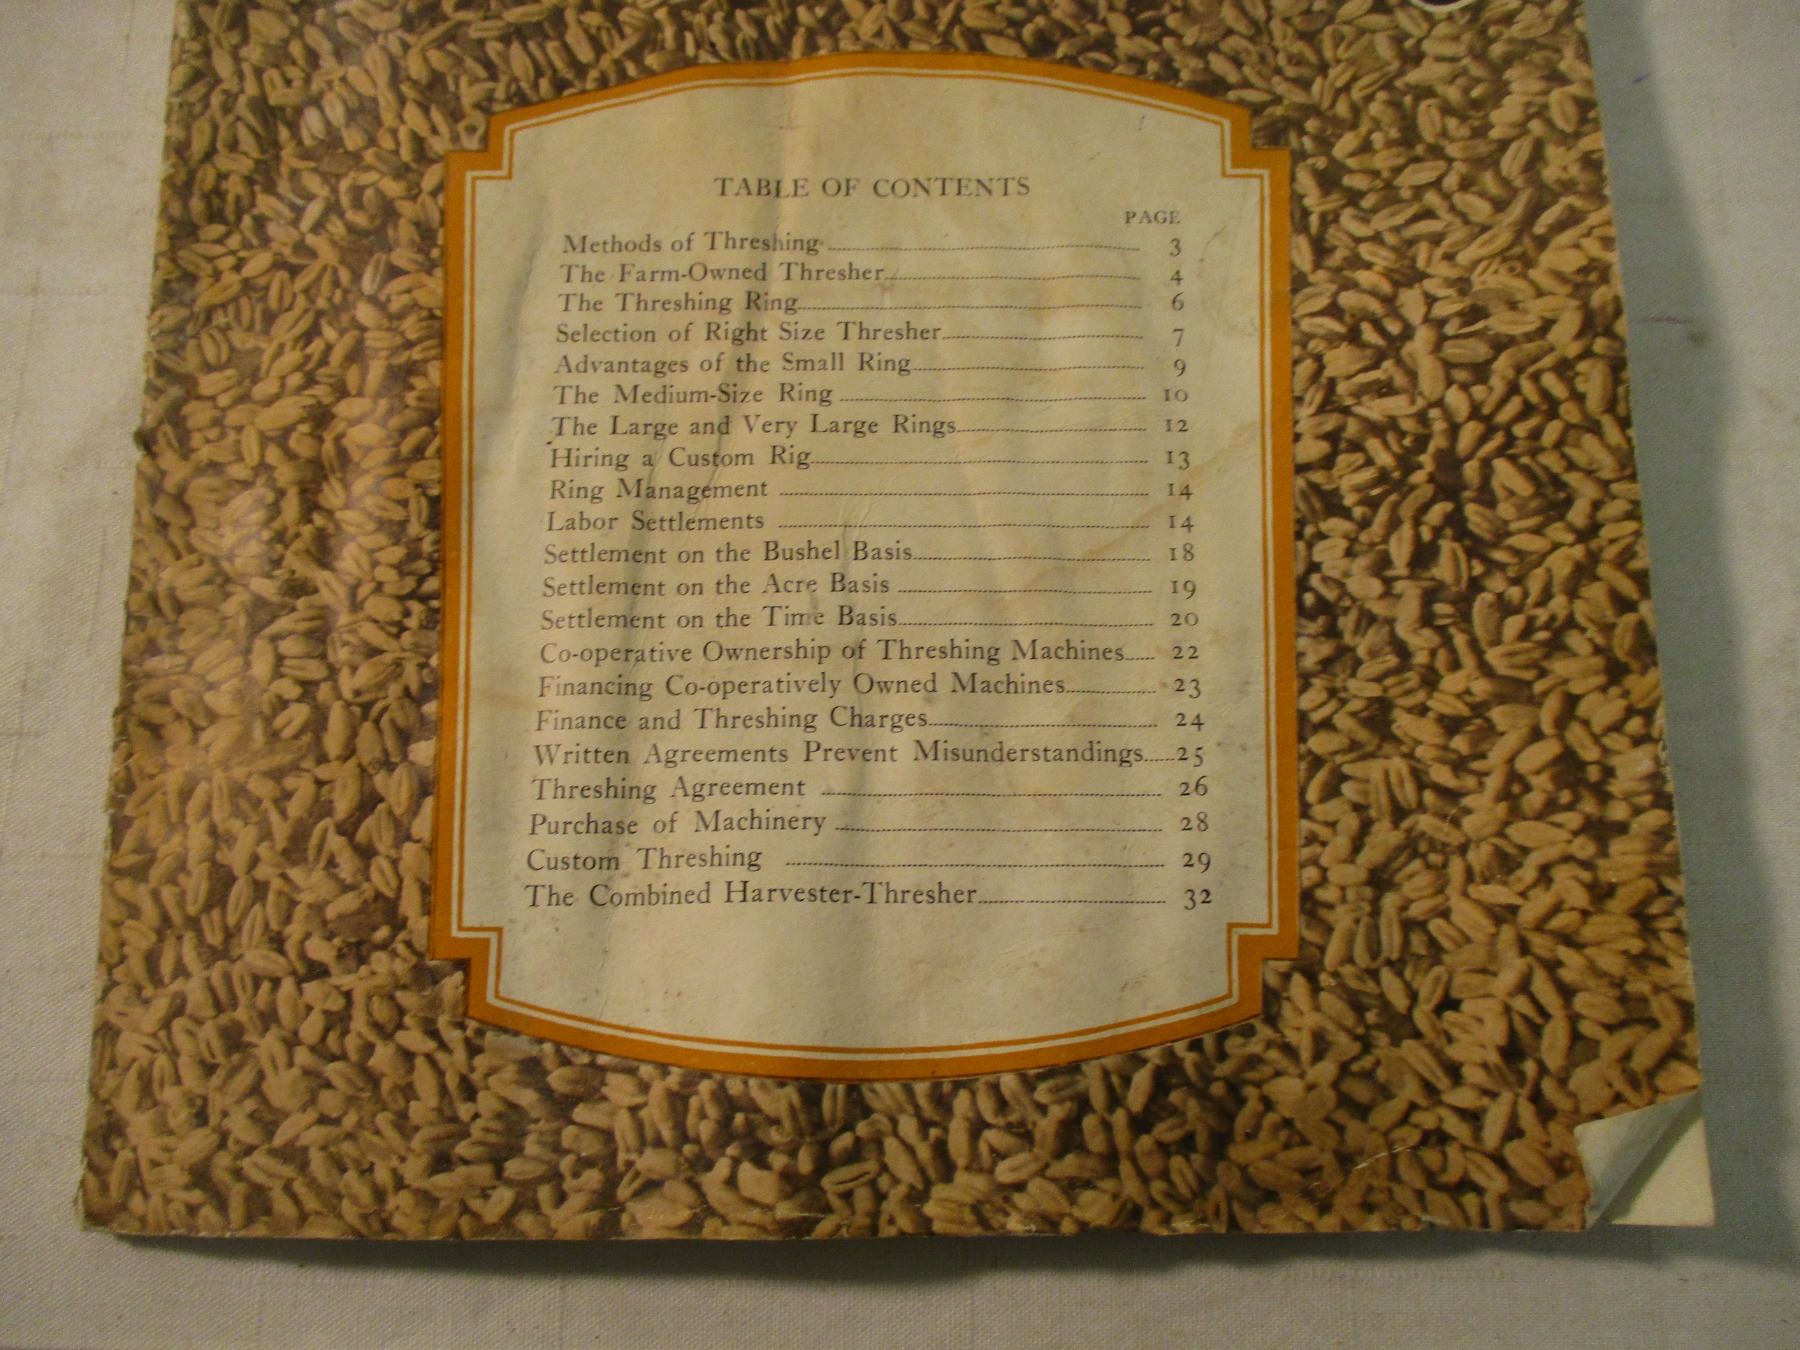 TABLE OF CONTENTS
PAGE
Methods of Threshing 3
The Farm-Owned Thresher 4
The Threshing Ring 6
Selection of Right Size Thresher 7
Advantages of the Small Ring 9
The Medium-Size Ring 10
The Large and Very Large Rings 12
Hiring a Custom Rig 13
Ring Management 14
Labor Settlements 14
Settlement on the Bushel Basis 18
Settlement on the Acre Basis 19
Settlement on the Time Basis 20
Co-operative Ownership of Threshing Machines 22
Financing Co-operatively Owned Machines 23
Finance and Threshing Charges 24
Written Agreements Prevent Misunderstandings 25
Threshing Agreement 26
Purchase of Machinery 28
Custom Threshing 29
The Combined Harvester-Thresher 32